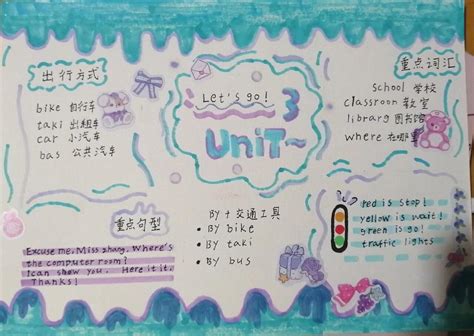 出行方式
bike 自行车
taki 出租车
car 小汽车
bas 公共汽车
Let's go!
3
Unit~
重点词汇
school 学校
classroon 教室
library 图书馆
where 在哪里
重点句型
Excuse me, Miss zhang, Where's
the computer room?
I can show you. Here it it.
Thanks!
BY + 交通工具
• BY bike
• BY taki
• BY bus
red is stop!
yellow is wait!
green is go!
traffic lights